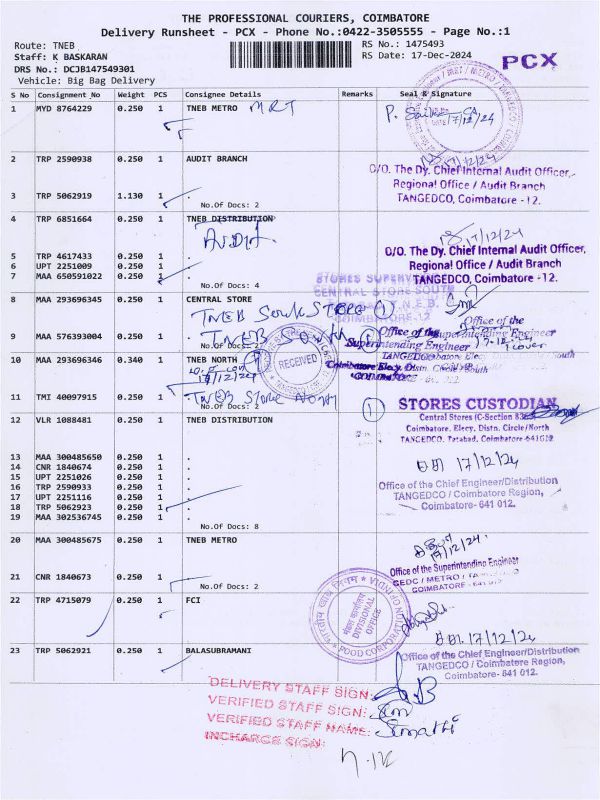 THE PROFESSIONAL COURIERS, COIMBATORE
Delivery Runsheet - PCX - Phone No.:0422-3505555 - Page No.:1
Route: TNEB
Staff: K BASKARAN
DRS No.: DCJB147549301
Vehicle: Big Bag Delivery
RS No.: 1475493
RS Date: 17-Dec-2024
PCX
S No Consignment_No Weight PCS Consignee Details Remarks Seal & Signature
1 MYD 8764229 0.250 1 TNEB METRO MRT
17/12/24
2 TRP 2590938 0.250 1 AUDIT BRANCH
17/12/24
O/O. The Dy. Chief Internal Audit Officer,
Regional Office / Audit Branch
TANGEDCO, Coimbatore - 12.
3 TRP 5062919 1.130 1 .
No.Of Docs: 2
4 TRP 6851664 0.250 1 TNEB DISTRIBUTION
17/12/24
O/O. The Dy. Chief Internal Audit Officer,
Regional Office / Audit Branch
TANGEDCO, Coimbatore -12.
5 TRP 4617433 0.250 1 .
6 UPT 2251009 0.250 1 .
7 MAA 650591022 0.250 1 .
No.Of Docs: 4
8 MAA 293696345 0.250 1 CENTRAL STORE
9 MAA 576393004 0.250 1 .
Office of the
10 MAA 293696346 0.340 1 TNEB NORTH
RECEIVED
11 TMI 40097915 0.250 1 .
No.Of Docs: 2
STORES CUSTODIAN
Central Stores (C-Section
Coimbatore. Elecy. Distn. Circle/North
TANGEDCO, Tatabad, Coimbatore-641012
12 VLR 1088481 0.250 1 TNEB DISTRIBUTION
17/12/24
Office of the Chief Engineer/Distribution
TANGEDCO / Coimbatore Region,
Coimbatore- 641 012.
13 MAA 300485650 0.250 1 .
14 CNR 1840674 0.250 1 .
15 UPT 2251026 0.250 1 .
16 TRP 2590933 0.250 1 .
17 UPT 2251116 0.250 1 .
18 TRP 5062923 0.250 1 .
19 MAA 302536745 0.250 1 .
No.Of Docs: 8
20 MAA 300485675 0.250 1 TNEB METRO
17/12/24
Office of the Superintending Engineer
21 CNR 1840673 0.250 1 .
No.Of Docs: 2
22 TRP 4715079 0.250 1 FCI
DIVISIONAL OFFICE
17/12/24
23 TRP 5062921 0.250 1 BALASUBRAMANI
Office of the Chief Engineer/Distribution
TANGEDCO / Coimbatore Region,
Coimbatore- 641 012.
DELIVERY STAFF SIGN:
VERIFIED STAFF SIGN:
VERIFIED STAFF NAME: Sumathi
INCHARGE SIGN: